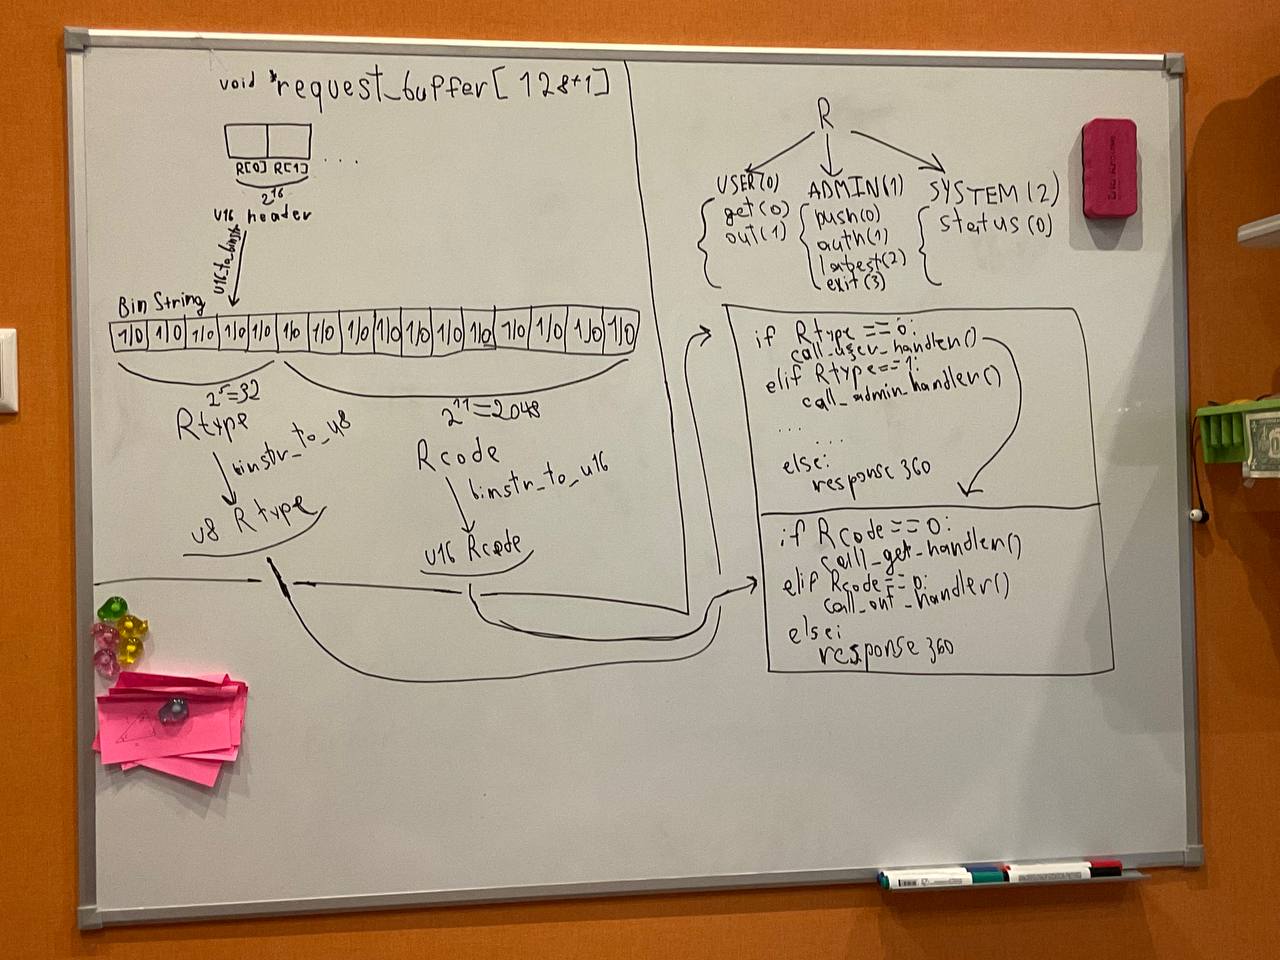 void *request_buffer[128+1]
R[0] R[1]
....
2^16
u16 header
u16_to_binstr
Bin String
1/0 1/0 1/0 1/0 1/0 1/0 1/0 1/0 1/0 1/0 1/0 1/0 1/0 1/0 1/0 1/0
2^5=32
Rtype
binstr_to_u8
u8 Rtype
2^11=2048
Rcode
binstr_to_u16
u16 Rcode
R
USER(0)
get(0)
out(1)
ADMIN(1)
push(0)
auth(1)
latest(2)
exit(3)
SYSTEM(2)
status(0)
if Rtype==0:
call_user_handler()
elif Rtype==1:
call_admin_handler()
... ...
else:
response 360
if Rcode==0:
call_get_handler()
elif Rcode==0:
call_out_handler()
else:
response 360